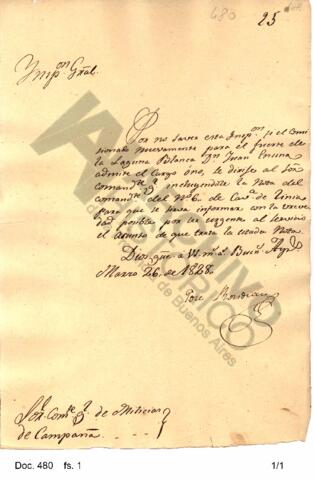 680
25
Ynspon. Gral.
Por no saver esta Inspon. si el Comi
sionado nuevamente para el fuerte de
la Laguna Blanca Dn. Juan
admite el cargo ó no, se dirije al Sor.
Comandte. incluyendole la Nota del
comandte. del No. 6. de Cava. de Linea
para que se sirva informar con la breve
dad posible por ser urgente al servicio
el asunto de que trata la citada Nota.
Dios gue. á V. ms. as. Buens. Ays.
Marzo 26. de 1828.
José Rondeau
Sor. Comte. gl. de Milicias
de Campaña
ARCHIVO
HISTORICO
de Buenos Aires
Doc. 480 fs. 1
1/1